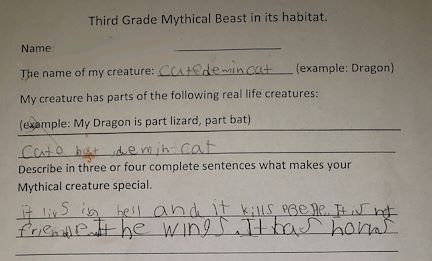 Third Grade Mythical Beast in its habitat.
Name:
The name of my creature: Cutedemincat (example: Dragon)
My creature has parts of the following real life creatures:
(example: My Dragon is part lizard, part bat)
demin cat
Describe in three or four complete sentences what makes your
Mythical creature special.
it livs in hell and it kills It is not
It he wings. It has horns